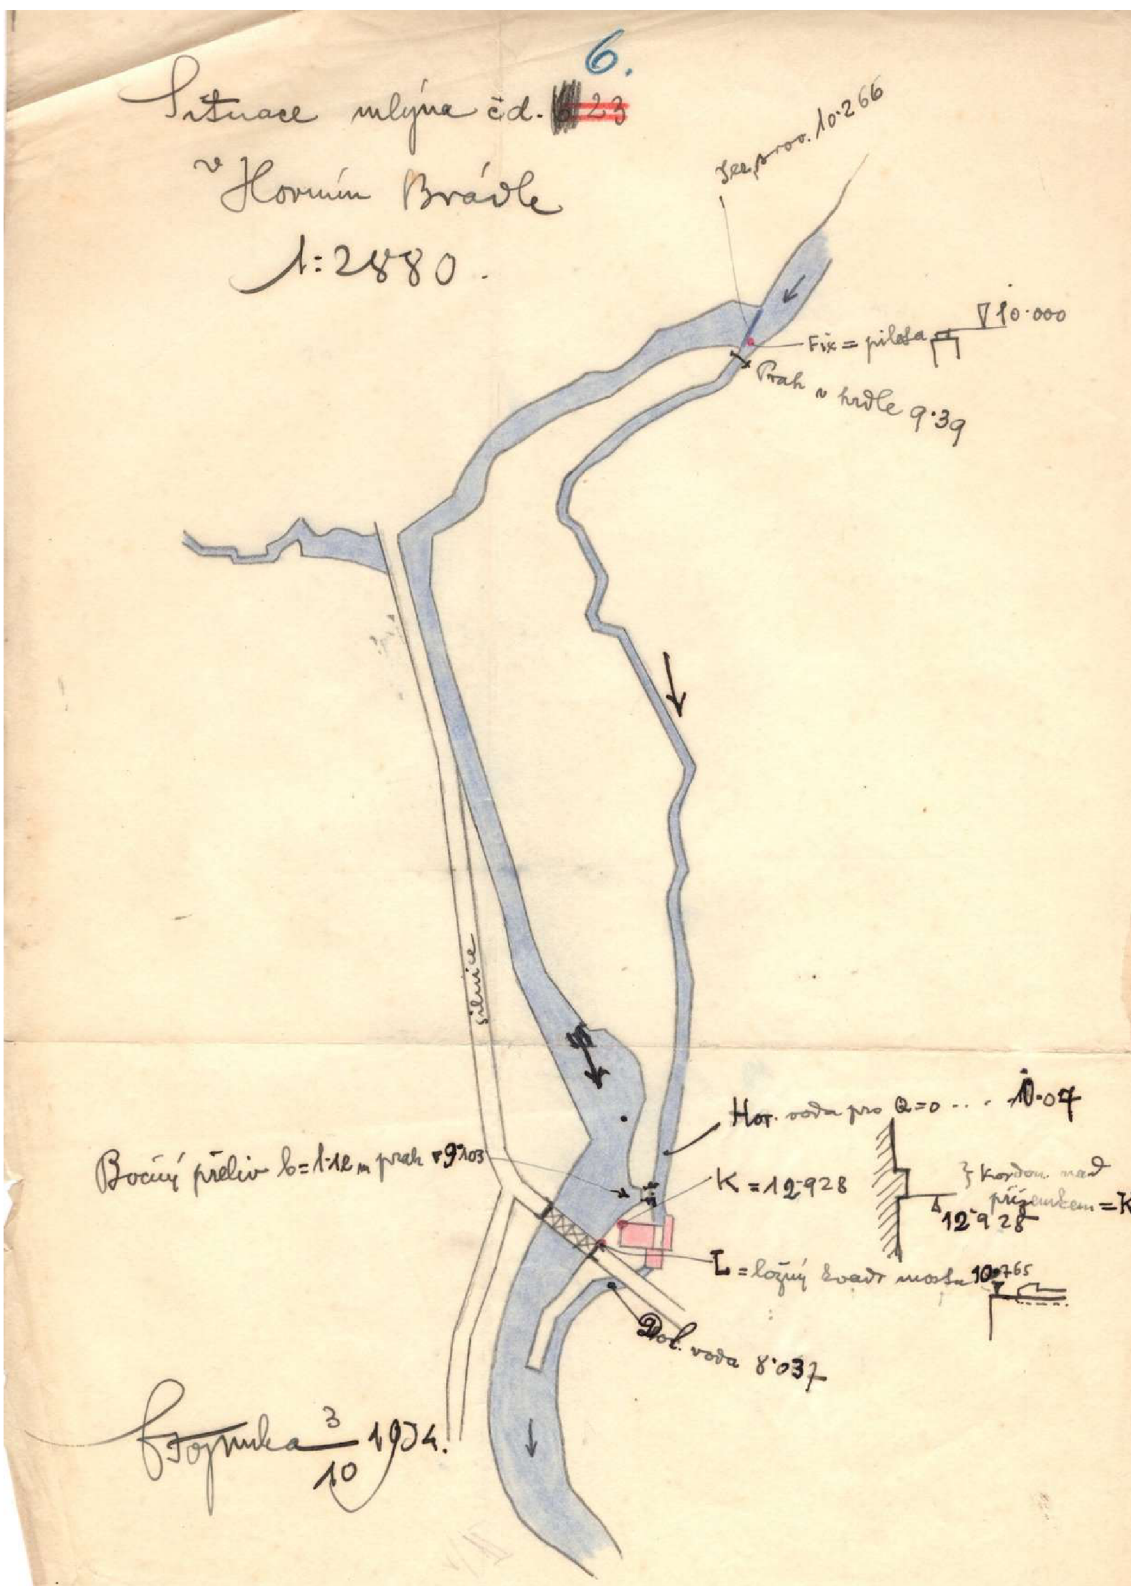 6.
Situace mlýna čd. 23
v Horním Brádle
1:2880.
prov. 10.266
Fix = pilota ▽10.000
Prah v hrdle 9.39
silnice
Hor. voda pro Q=0 ... 10.07
Bočný přeliv b=1.12 m prah 9.103
K = 12.928
kordon nad
přízemkem = K
12.928
L = ložný kvadr mostu 10.765
Dol. voda 8.037
3
10 1934.